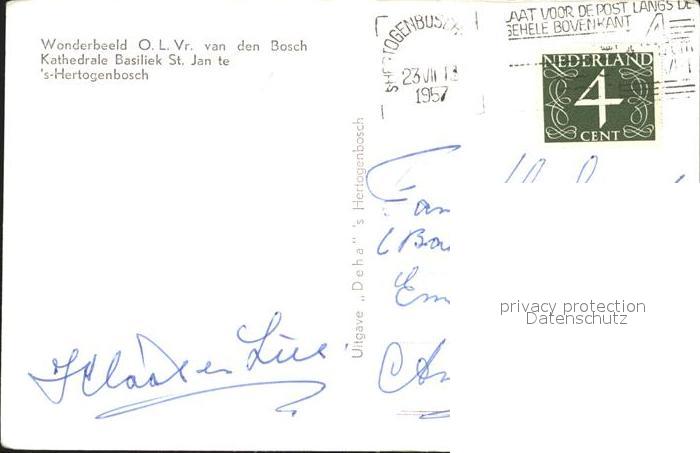 Wonderbeeld O. L. Vr. van den Bosch
Kathedrale Basiliek St. Jan te
's-Hertogenbosch
'S HERTOGENBOSCH
23 VII 13
1957
LAAT VOOR DE POST LANGS DE
GEHELE BOVENKANT
NEDERLAND
4
CENT
Uitgave „Deha” 's Hertogenbosch
Fam
(Bo
Em
privacy protection
Datenschutz
Klaas en Lies